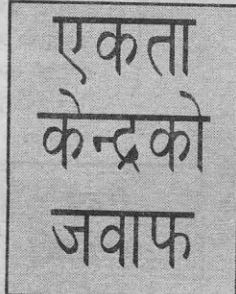 एकता
केन्द्रको
जवाफ